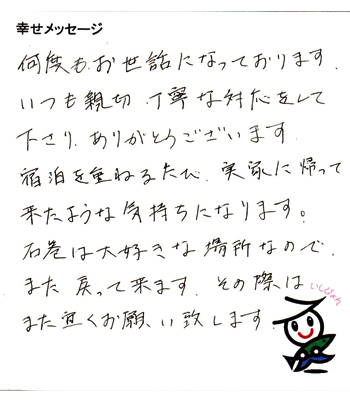 幸せメッセージ
何度もお世話になっております.
いつも親切.丁寧な対応をして
下さり.ありがとうございます.
宿泊を重ねるたび.実家に帰って
来たような気持ちになります。
石巻は大好きな場所なので.
また戻って来ます.その際は
いしぴょん
また宜くお願い致します.